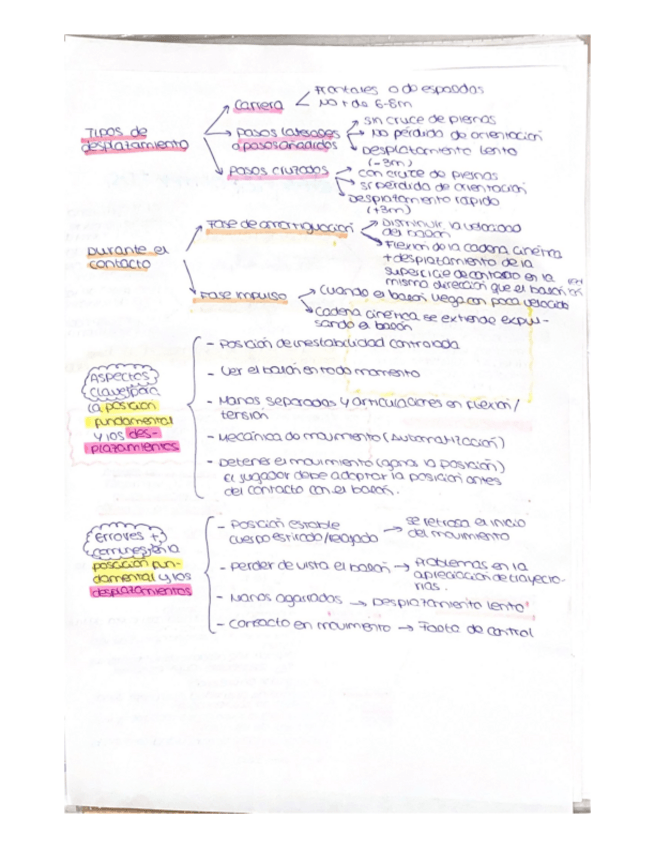 Tipos de desplazamiento
Carrera
Frontales o de espaldas
No + de 6-8m
Pasos laterales o pasos añadidos
sin cruce de piernas
No pérdida de orientación
Desplazamiento lento (-3m)
Pasos cruzados
con cruce de piernas
sí pérdida de orientación
Desplazamiento rápido (+3m)
Durante el contacto
Fase de amortiguación
Disminuir la velocidad del balón
Flexión de la cadena cinética
+ desplazamiento de la
superficie de contacto en la
misma dirección que el balón
Fase impulso
Cuando el balón llega con poca velocidad
Cadena cinética se extiende expul-
sando el balón
Aspectos
clave para
la posición
fundamental
y los des-
plazamientos
- Posición de inestabilidad controlada
- Ver el balón en todo momento
- Manos separadas y articulaciones en flexión/
tensión
- Mecánica de movimiento (Automatización)
- Detener el movimiento (ganar la posición)
El jugador debe adoptar la posición antes
del contacto con el balón.
Errores +
comunes en la
posición fun-
damental y los
desplazamientos
- Posición estable
cuerpo estirado/relajado
se retrasa el inicio
del movimiento
- Perder de vista el balón → Problemas en la
apreciación de trayecto-
rias.
- Manos agarradas → Desplazamiento lento
- Contacto en movimiento → Falta de control